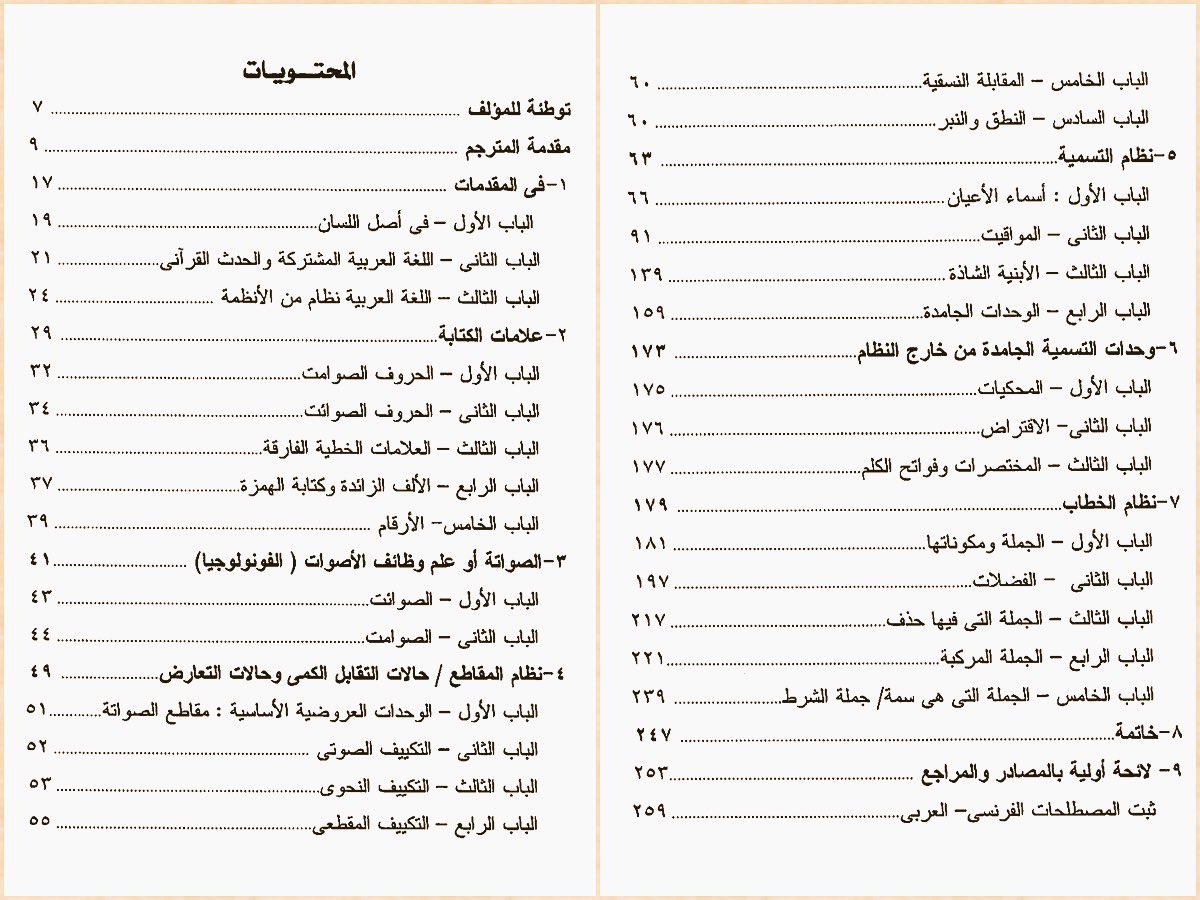 المحتـــويـات
توطئة للمؤلف ........ ٧
مقدمة المترجم ........ ٩
١-فى المقدمات ........ ١٧
الباب الأول – فى أصل اللسان........ ١٩
الباب الثانى – اللغة العربية المشتركة والحدث القرآنى........ ٢١
الباب الثالث – اللغة العربية نظام من الأنظمة ........ ٢٤
٢-علامات الكتابة........ ٢٩
الباب الأول – الحروف الصوامت........ ٣٢
الباب الثانى – الحروف الصوائت........ ٣٤
الباب الثالث – العلامات الخطية الفارقة........ ٣٦
الباب الرابع – الألف الزائدة وكتابة الهمزة........ ٣٧
الباب الخامس– الأرقام ........ ٣٩
٣-الصواتة أو علم وظائف الأصوات ( الفونولوجيا) ........ ٤١
الباب الأول – الصوائت........ ٤٣
الباب الثانى – الصوامت........ ٤٤
٤-نظام المقاطع / حالات التقابل الكمى وحالات التعارض........ ٤٩
الباب الأول – الوحدات العروضية الأساسية : مقاطع الصواتة........ ٥١
الباب الثانى – التكييف الصوتى ........ ٥٢
الباب الثالث – التكييف النحوى........ ٥٣
الباب الرابع – التكييف المقطعى........ ٥٥
الباب الخامس – المقابلة النسقية........ ٦٠
الباب السادس – النطق والنبر........ ٦٠
٥-نظام التسمية........ ٦٣
الباب الأول : أسماء الأعيان........ ٦٦
الباب الثانى – المواقيت........ ٩١
الباب الثالث – الأبنية الشاذة ........ ١٣٩
الباب الرابع – الوحدات الجامدة........ ١٥٩
٦-وحدات التسمية الجامدة من خارج النظام........ ١٧٣
الباب الأول – المحكيات........ ١٧٥
الباب الثانى– الاقتراض........ ١٧٦
الباب الثالث – المختصرات وفواتح الكلم........ ١٧٧
٧-نظام الخطاب........ ١٧٩
الباب الأول – الجملة ومكوناتها........ ١٨١
الباب الثانى – الفضلات........ ١٩٧
الباب الثالث – الجملة التى فيها حذف........ ٢١٧
الباب الرابع – الجملة المركبة........ ٢٢١
الباب الخامس – الجملة التى هى سمة/ جملة الشرط........ ٢٣٩
٨-خاتمة........ ٢٤٧
٩- لائحة أولية بالمصادر والمراجع ........ ٢٥٣
ثبت المصطلحات الفرنسى– العربى........ ٢٥٩